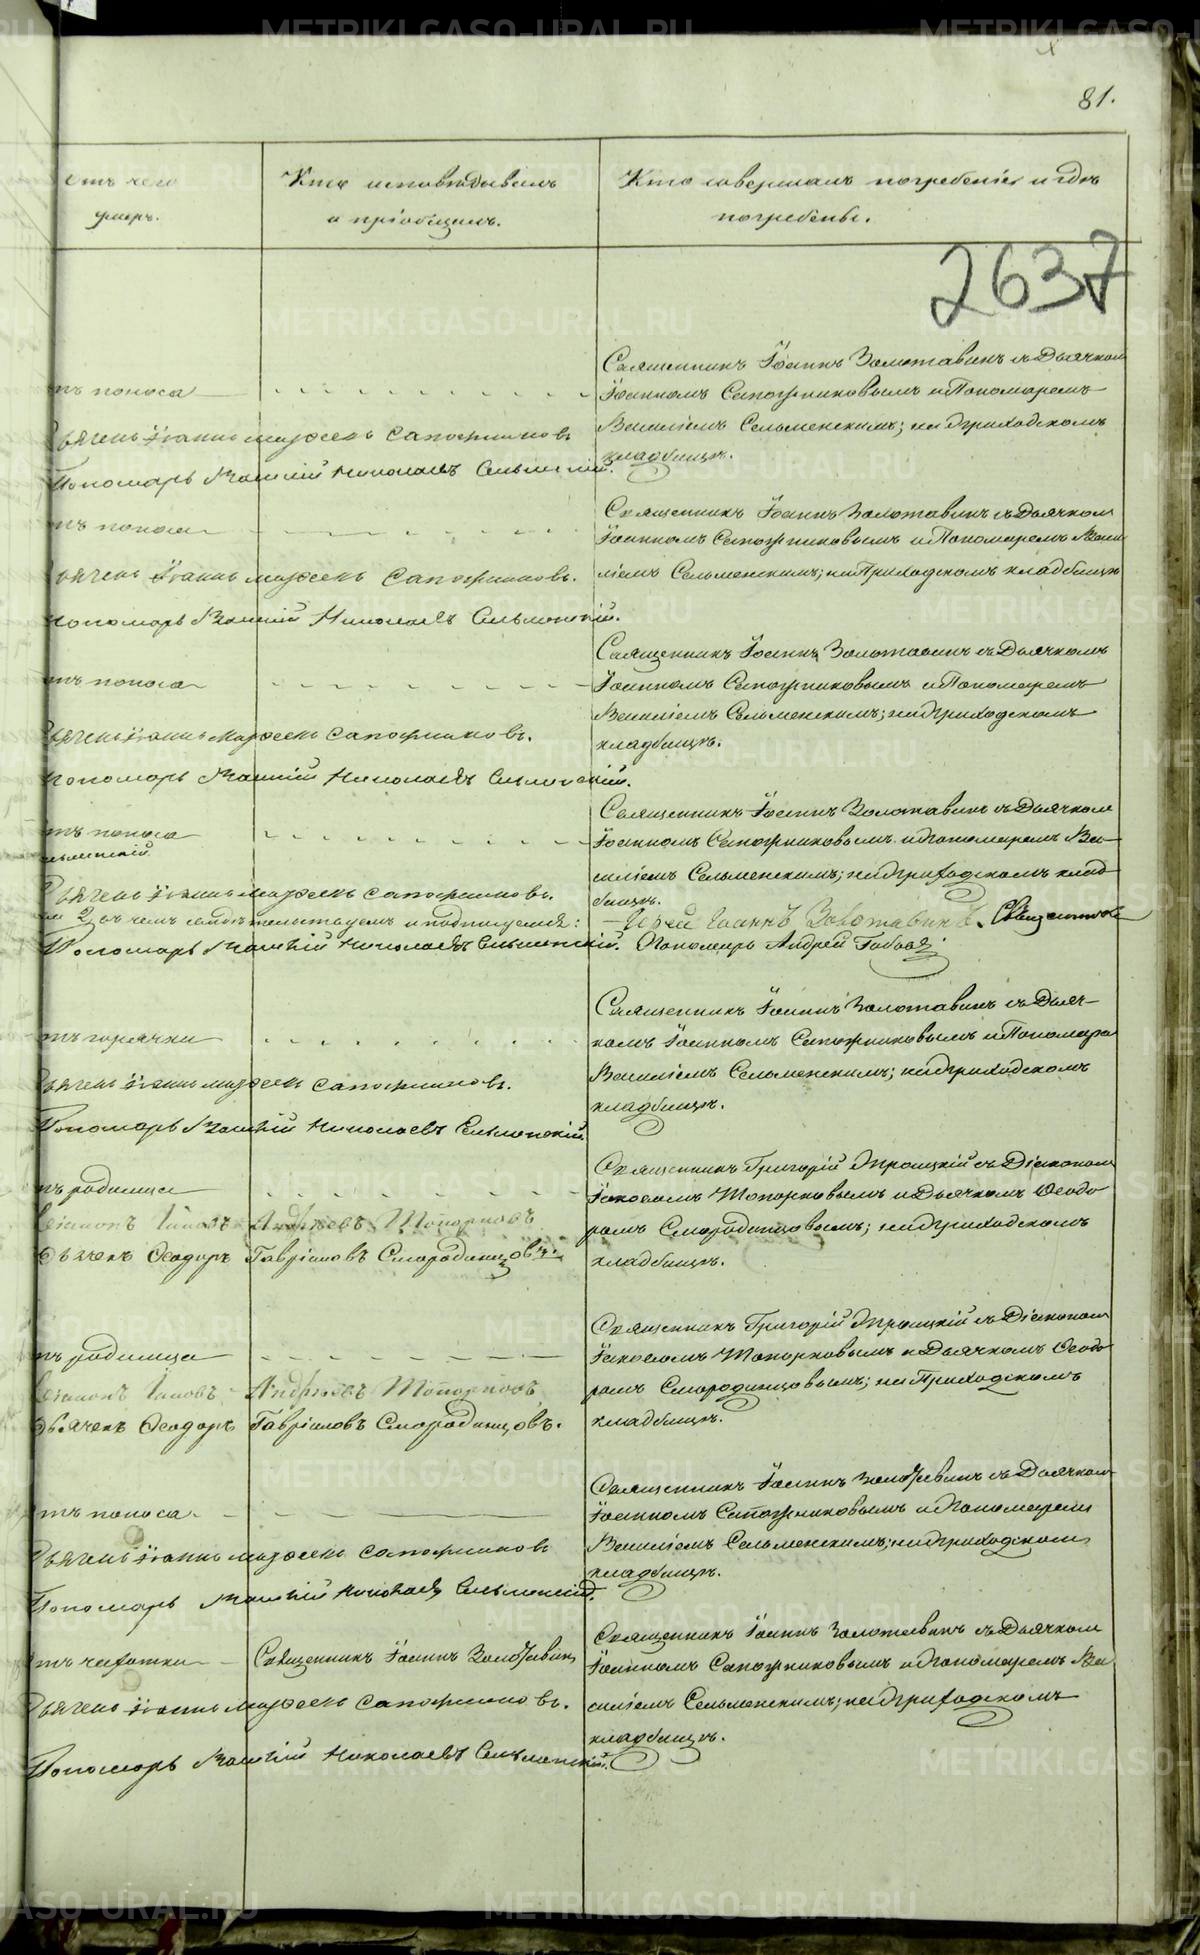 81.
Отъ чего
умеръ.
Кто исповѣдывалъ
и пріобщилъ.
Кто совершалъ погребеніе и гдѣ
погребены.
2637
Священникъ Іоаннъ Золотавинъ съ Дьячком
тъ поноса
Іоанномъ Сапожниковымъ и Пономаремъ
Василіемъ Сельменскимъ; на Приходскомъ
Дьячекъ Іоаннъ Сапожниковъ
кладбищѣ.
Пономарь Василій Николаевъ Сельменскій.
Священникъ Іоаннъ Золотавинъ съ Дьячком
тъ поноса
Іоанномъ Сапожниковымъ и Пономаремъ Васи
ліемъ Сельменскимъ; на Приходскомъ кладбищѣ
Дьячекъ Іоаннъ Сапожниковъ.
Пономарь Василій Николаевъ Сельменскій.
Священникъ Іоаннъ Золотавинъ съ Дьячкомъ
тъ поноса
Іоанномъ Сапожниковымъ и Пономаремъ
Василіемъ Сельменскимъ; на Приходскомъ
Дьячекъ Іоаннъ Сапожниковъ.
кладбищѣ.
Пономарь Василій Николаевъ Сельменскій.
Священникъ Іоаннъ Золотавинъ съ Дьячком
тъ поноса
Іоанномъ Сапожниковымъ и Пономаремъ Ва-
силіемъ Сельменскимъ; на Приходскомъ клад
Дьячекъ Іоаннъ Сапожниковъ.
бищѣ.
въ чемъ свидѣтельствуемъ и подписуемся:
Іерей Іоаннъ Золотавинъ.
Пономарь Василій Николаевъ Сельменскій.
Пономарь Андрей
Священникъ Іоаннъ Золотавинъ съ Дьяч-
тъ горячки
комъ Іоанномъ Сапожниковымъ и Пономаре
Василіемъ Сельменскимъ; на Приходскомъ
Дьячекъ Іоаннъ Сапожниковъ.
кладбищѣ.
Пономарь Василій Николаевъ Сельменскій
Священникъ Григорій Троицкій съ Діаконом
тъ родимца
Іаковомъ Топорковымъ и Дьячкомъ Ѳеодо
Діаконъ Іаковъ Андреевъ Топорковъ
ромъ Смородинцовымъ; на Приходскомъ
Дьячекъ Ѳеодоръ Гавріиловъ Смородинцовъ.
кладбищѣ.
Священникъ Григорій Троицкій съ Діакономъ
тъ родимца
Іаковомъ Топорковымъ и Дьячкомъ Ѳеодо
Діаконъ Іаковъ Андреевъ Топорковъ
ромъ Смородинцовымъ; на Приходскомъ
Дьячекъ Ѳеодоръ Гавріиловъ Смородинцовъ.
кладбищѣ.
Священникъ Іоаннъ Золотавинъ съ Дьячком
тъ поноса
Іоанномъ Сапожниковымъ и Пономаремъ
Василіемъ Сельменскимъ; на Приходскомъ
Дьячекъ Іоаннъ Сапожниковъ
кладбищѣ.
Пономарь Василій Николаевъ Сельменскій.
Священникъ Іоаннъ Золотавинъ съ Дьячком
тъ чахотки
Священникъ Іоаннъ Золотавинъ
Іоанномъ Сапожниковымъ и Пономаремъ Ва
силіемъ Сельменскимъ; на Приходскомъ
Дьячекъ Іоаннъ Сапожниковъ.
кладбищѣ.
Пономарь Василій Николаевъ Сельменскій.
METRIKI.GASO-URAL.RU